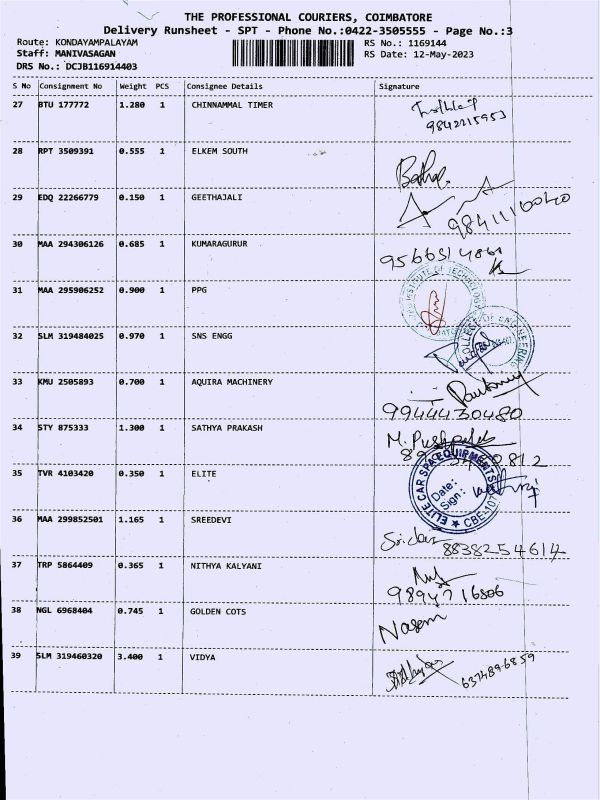 THE PROFESSIONAL COURIERS, COIMBATORE
Delivery Runsheet - SPT - Phone No.:0422-3505555 - Page No.:3
Route: KONDAYAMPALAYAM RS No.: 1169144
Staff: MANIVASAGAN RS Date: 12-May-2023
DRS No.: DCJB116914403
S No Consignment No Weight PCS Consignee Details Signature
27 BTU 177772 1.280 1 CHINNAMMAL TIMER
9842215953
28 RPT 3509391 0.555 1 ELKEM SOUTH
29 EDQ 22266779 0.150 1 GEETHAJALI
9841116040
30 MAA 294306126 0.685 1 KUMARAGURUR
9566514861
31 MAA 295906252 0.900 1 PPG
INSTITUTE OF TECHNOLOGY
32 SLM 319484025 0.970 1 SNS ENGG
COLLEGE OF ENGINEERING
33 KMU 2505893 0.700 1 AQUIRA MACHINERY
9944430480
34 STY 875333 1.300 1 SATHYA PRAKASH
M. 
35 TVR 4103420 0.350 1 ELITE
ELITE CAR SPA EQUIPMENTS
Date:
Sign:
CBE-107
36 MAA 299852501 1.165 1 SREEDEVI
8838254614
37 TRP 5864409 0.365 1 NITHYA KALYANI
9894716806
38 NGL 6968404 0.745 1 GOLDEN COTS
Nasem
39 SLM 319460320 3.400 1 VIDYA
6374896859